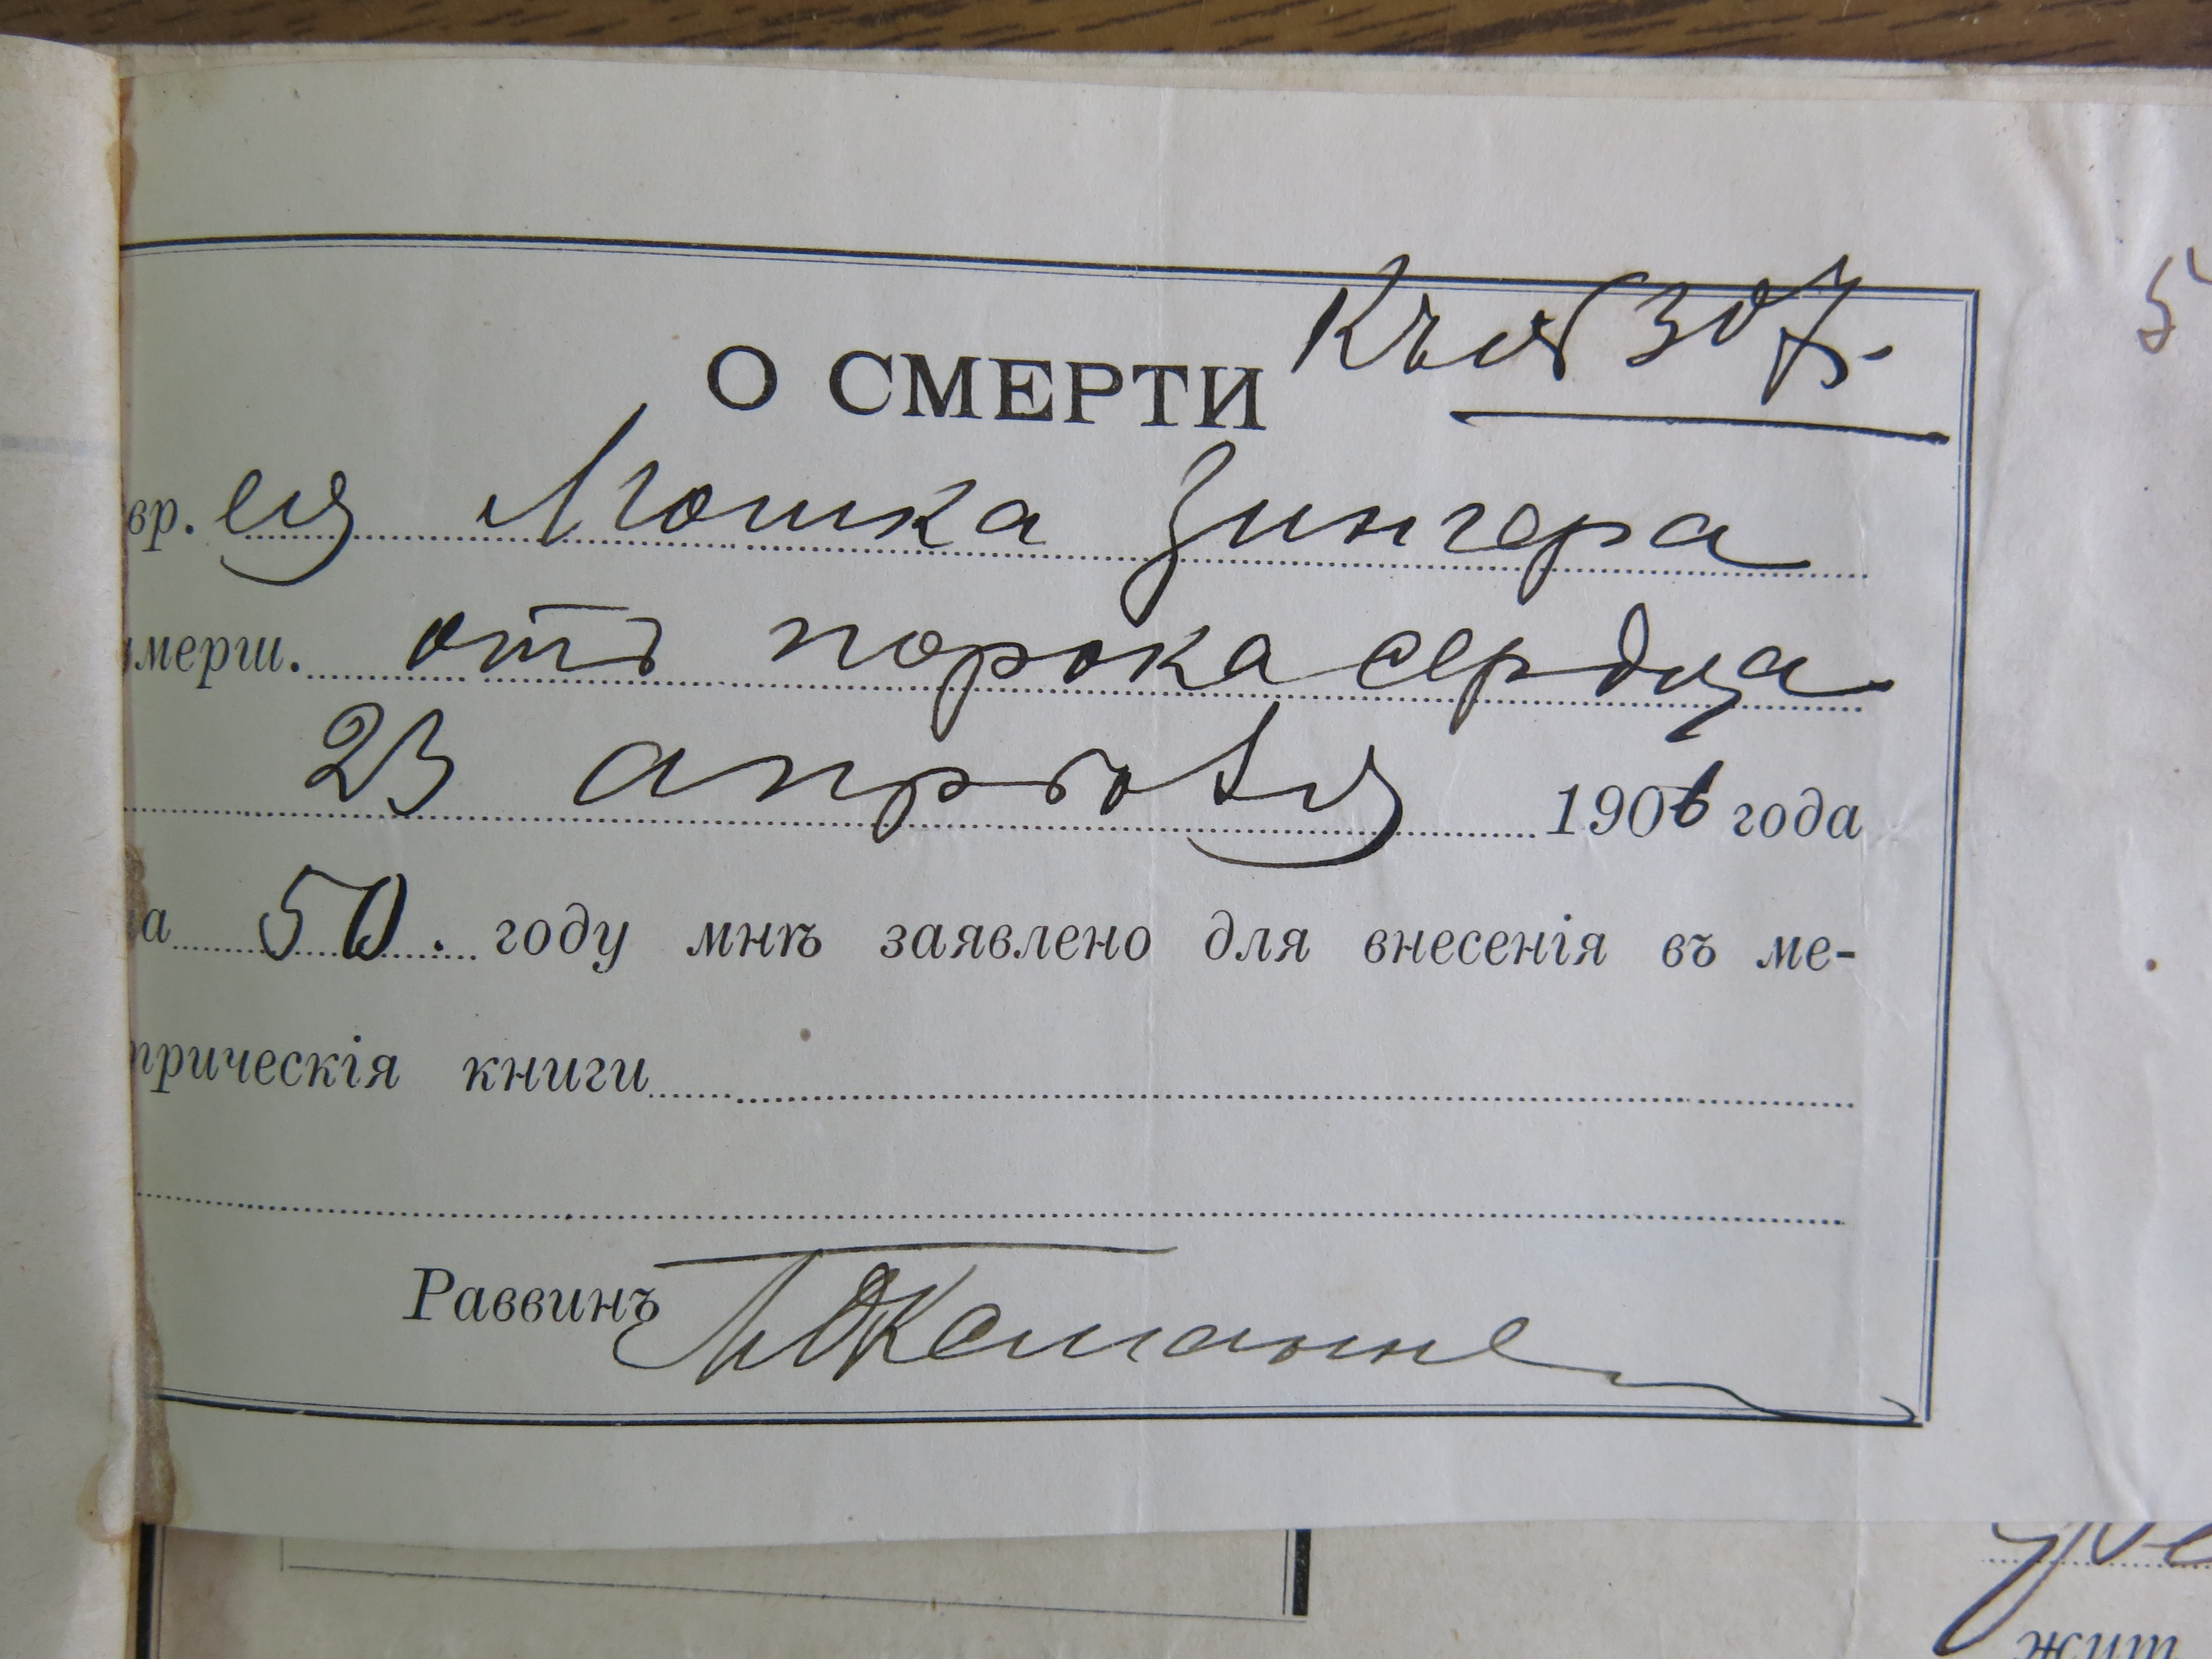 Къ № 307.
5
О СМЕРТИ
вр. ея Мошка Зингера
мерш. отъ порока сердца
23 апрѣля 1906 года
а 50. году мнѣ заявлено для внесенія въ ме-
трическія книги
Раввинъ
жит